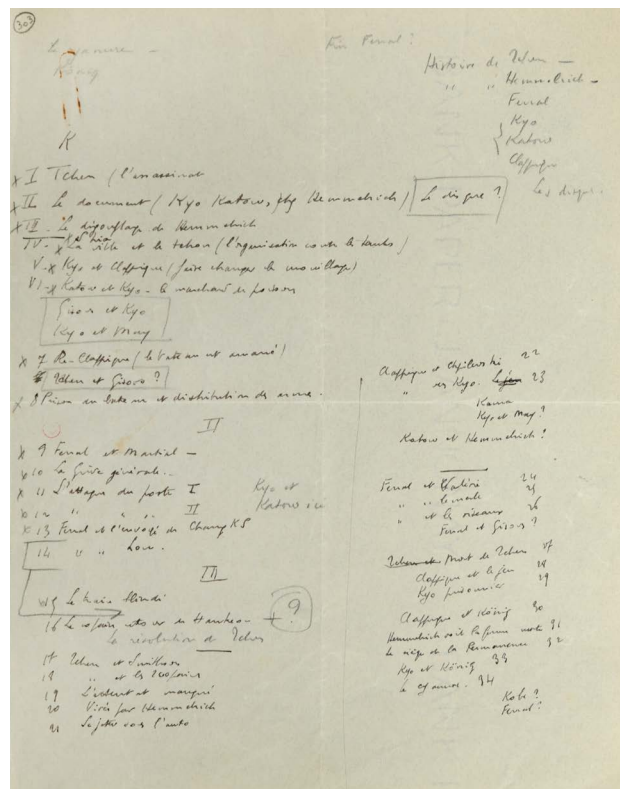 303
Fin Ferral ?
Histoire de Tchen —
" " Hemmelrich —
Ferral
Kyo
Katow
Clappique
K
x I Tchen (l'assassinat
x II Le document (Kyo Katow, Hemmelrich) Le disque ?
Les disques.
x III - Le de Hemmelrich
IV - x La ville et le (l'organisation contre les tanks)
V - x Kyo et Clappique (faire changer le mouillage)
VI - x Katow et Kyo - le marchand de poissons
Gisors et Kyo
Kyo et May
x 7 Re-Clappique (le bateau est amarré)
Tchen et Gisors ?
x 8 Prise du bateau et distribution des armes.
II
x 9 Ferral et Martial —
x 10 La grève générale..
x 11 L'attaque du poste I
x 12 " " II
Kyo et
Katow ici
x 13 Ferral et l'envoyé de Chang KS
14 " "
III
15 Le train blindé
16 Hankeo — + ?
La révolution et Tchen
17 Tchen et Smithson
18 " et les
19 L'attentat manqué
20 Virés par Hemmelrich
21 Se jette sous l'auto
Clappique et Chpilewski 22
" des Kyo. 23
Kama
Kyo et May ?
Katow et Hemmelrich ?
Ferral et Valérie 24
" " le 25
" et les oiseaux 26
Ferral et Gisors ?
Mort de Tchen 27
Clappique et le jeu 28
Kyo prisonnier 29
Clappique et König 30
Hemmelrich voit sa femme morte 31
Le siège de la Permanence 32
Kyo et König 33
Le cyanure. 34
Kobé ?
Ferral ?